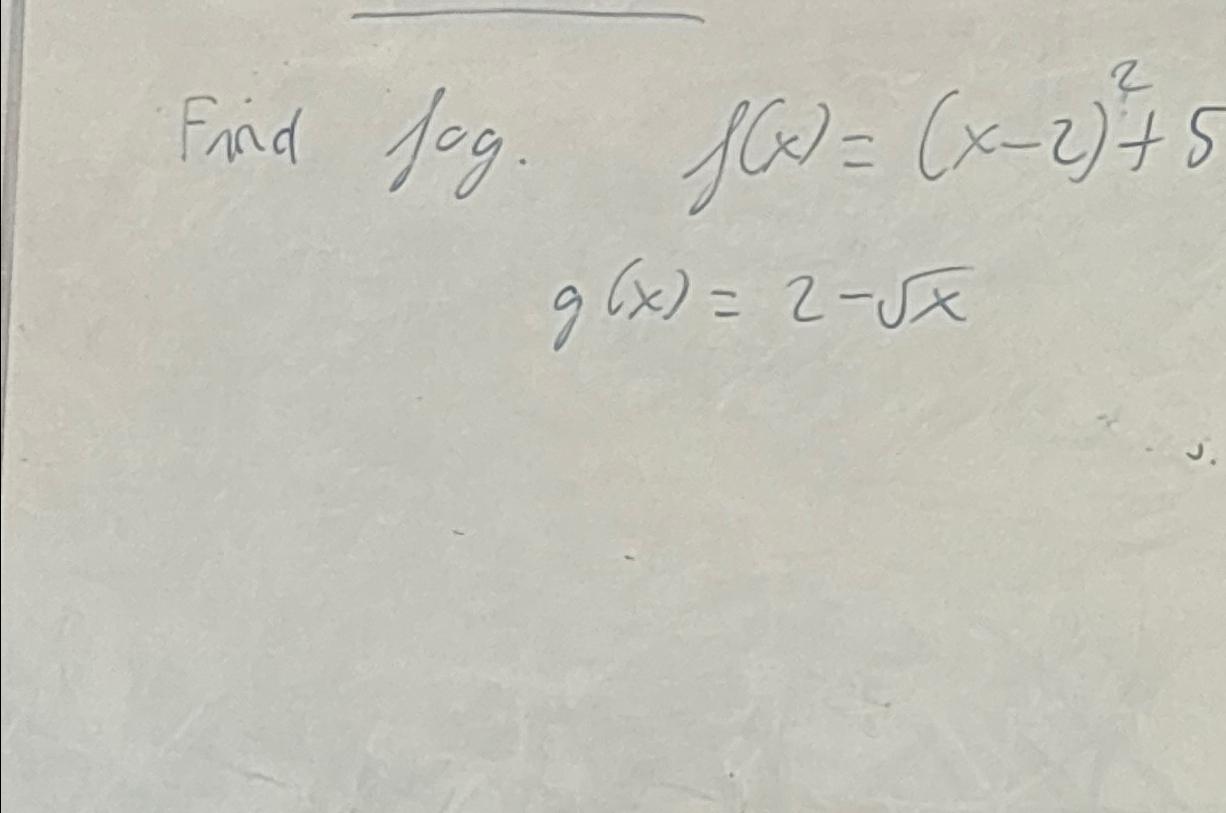 Find fog. f(x) = (x-2)² + 5
g(x) = 2-√x